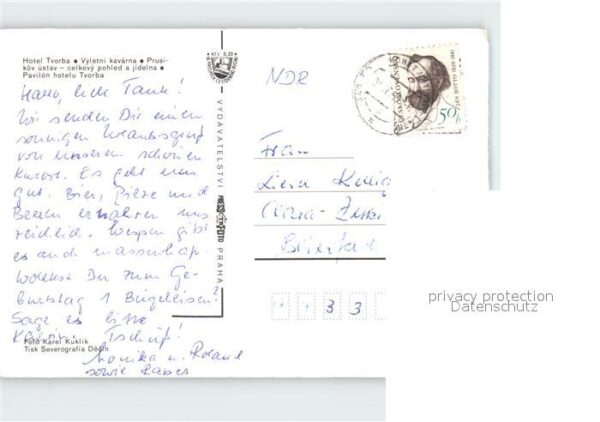 Hotel Tvorba ■ Výletní kavárna ■ Prusi-
kův ústav – celkový pohled a jídelna ■
Pavilón hotelu Tvorba
Kčs 0,30
NDR
50h
Hallo, liebe Tante!
Wir senden Dir einen
sonnigen Urlaubsgruß
von unserem schönen
Kurort. Es geht uns
gut. Bier, Pilze und
Beeren ernähren uns
reichlich. Wespen gibt
es auch massenhaft.
Wolltest Du zum Ge-
burtstag 1 Bügeleisen?
Sage es bitte
Tschüß!
Monika u. Roland
sowie
VYDAVATELSTVÍ PRESSFOTO PRAHA
Frau
Clara-
3 3
Foto Karel Kuklík
Tisk Severografia Děčín
privacy protection
Datenschutz